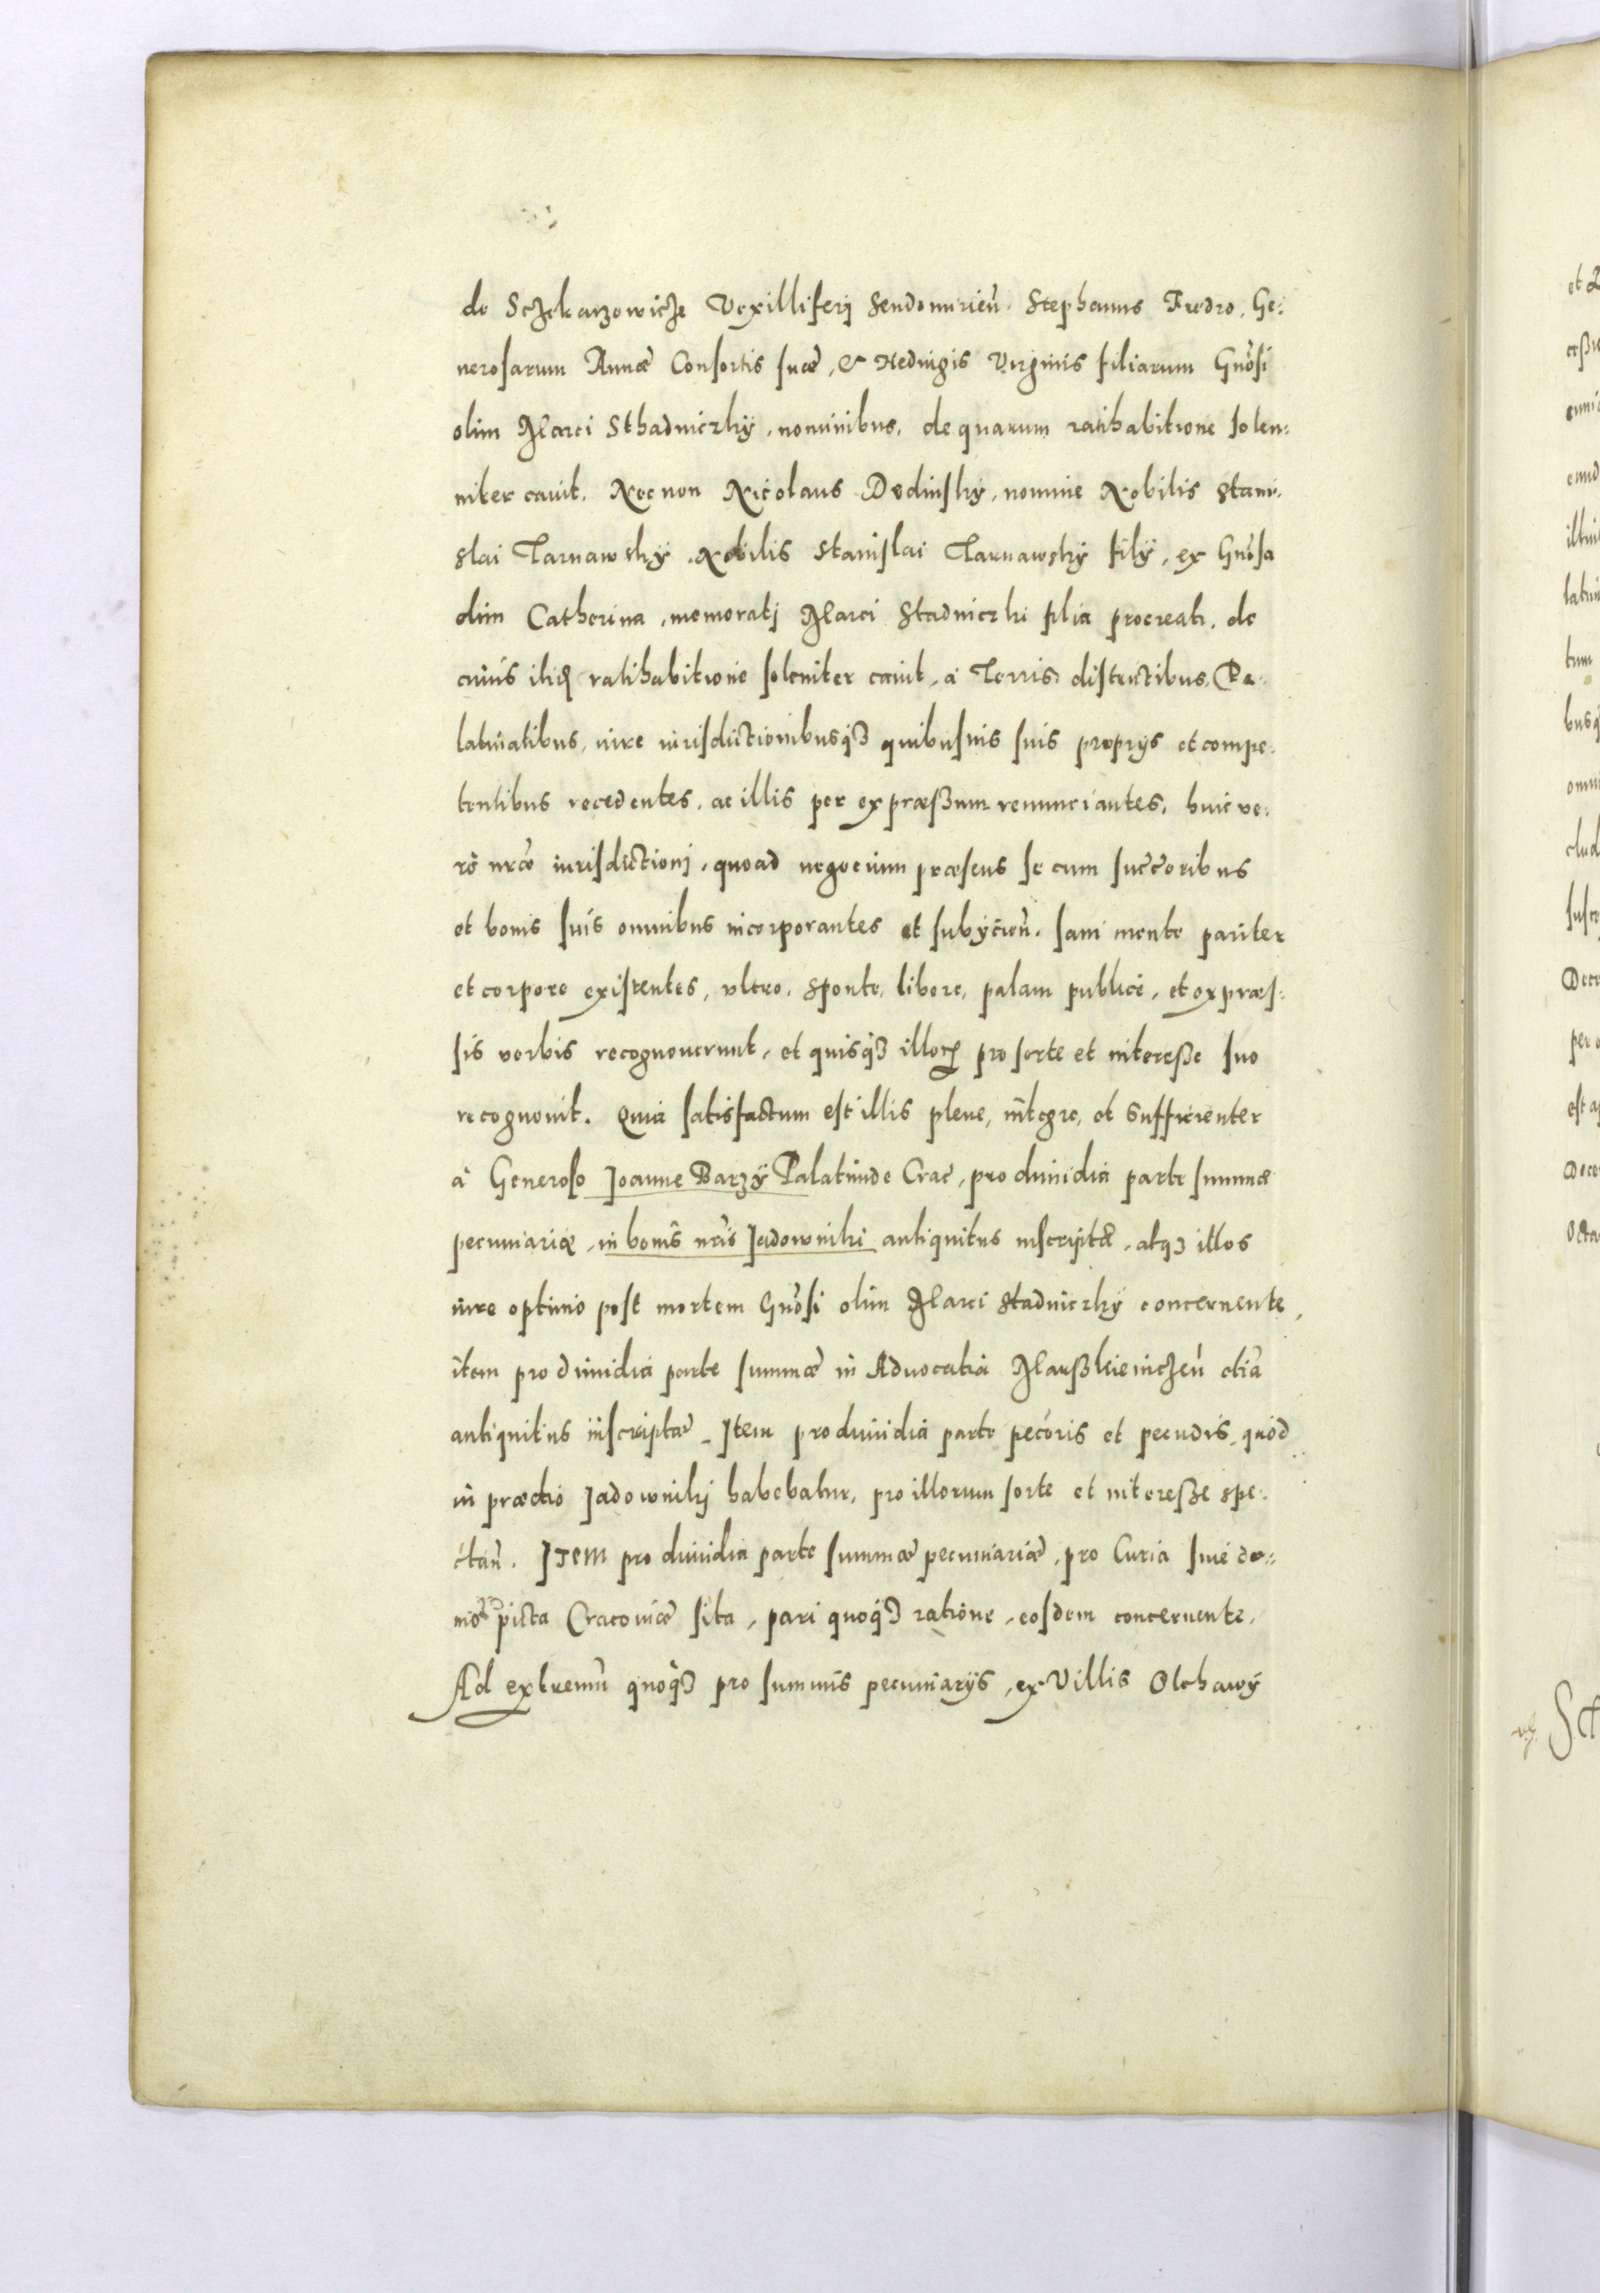 de Sczekarzowicze Vexilliferj Sendomirieñ. Stephanus Fredro, Ge:
nerosarum Annæ Consortis suæ, & Heduigis Virginis filiarum Gnõsi
olim Marci Sthadniczkÿ, nominibus, de quarum ratihabitione solen:
niter cauit. Necnon Nicolaus Dedinskÿ, nomine Nobilis Stani:
slai Tarnawskÿ, Nobilis Stanislai Tarnawskÿ filÿ, ex Gnõsa
olim Catherina, memoratj Marci Stadniczki filia procreati, de
cuius itidẽ ratihabitione soleniter cauit, à Terris, districtibus, Pa:
latinatibus, iure iurisdictionibusqꝫ quibusuis suis proprÿs et compe:
tentibus recedentes, ac illis per expræßum renunciantes, huic ve:
rò nr̃æ iurisdictionj, quoad negocium præsens se cum succ̃oribus
et bonis suis omnibus incorporantes et subÿcieñ. sani mente pariter
et corpore existentes, vltro, sponte, libere, palam publice, et expræs:
sis verbis recognouerunt, et quisqꝫ illoꝝ pro sorte et intereße suo
recognouit. Quia satisfactum est illis plene, integre, et sufficienter
à Generoso Joanne Barzÿ Palatinide Crac̃, pro dimidia parte summæ
pecuniariæ, in bonis nr̃is Jadownikj antiquitus inscriptæ, atqꝫ illos
iure optimo post mortem Gnõsi olim Marci Stadniczkÿ concernente,
item pro dimidia parte summæ in Aduocatia Marßkieuiczeñ etiã
antiquitus inscriptæ. Item pro dimidia parte pecoris et pecudis, quod
in prædio Jadownikj habebatur, pro illorum sorte et intereße spe:
ctañ. ITEM pro dimidia parte summæ pecuniariæ, pro Curia siue do:
mo picta Cracouiæ sita, pari quoqꝫ ratione, eosdem concernente,
Ad extremũ quoqꝫ pro summis pecuniarÿs, ex Villis Olchawÿ